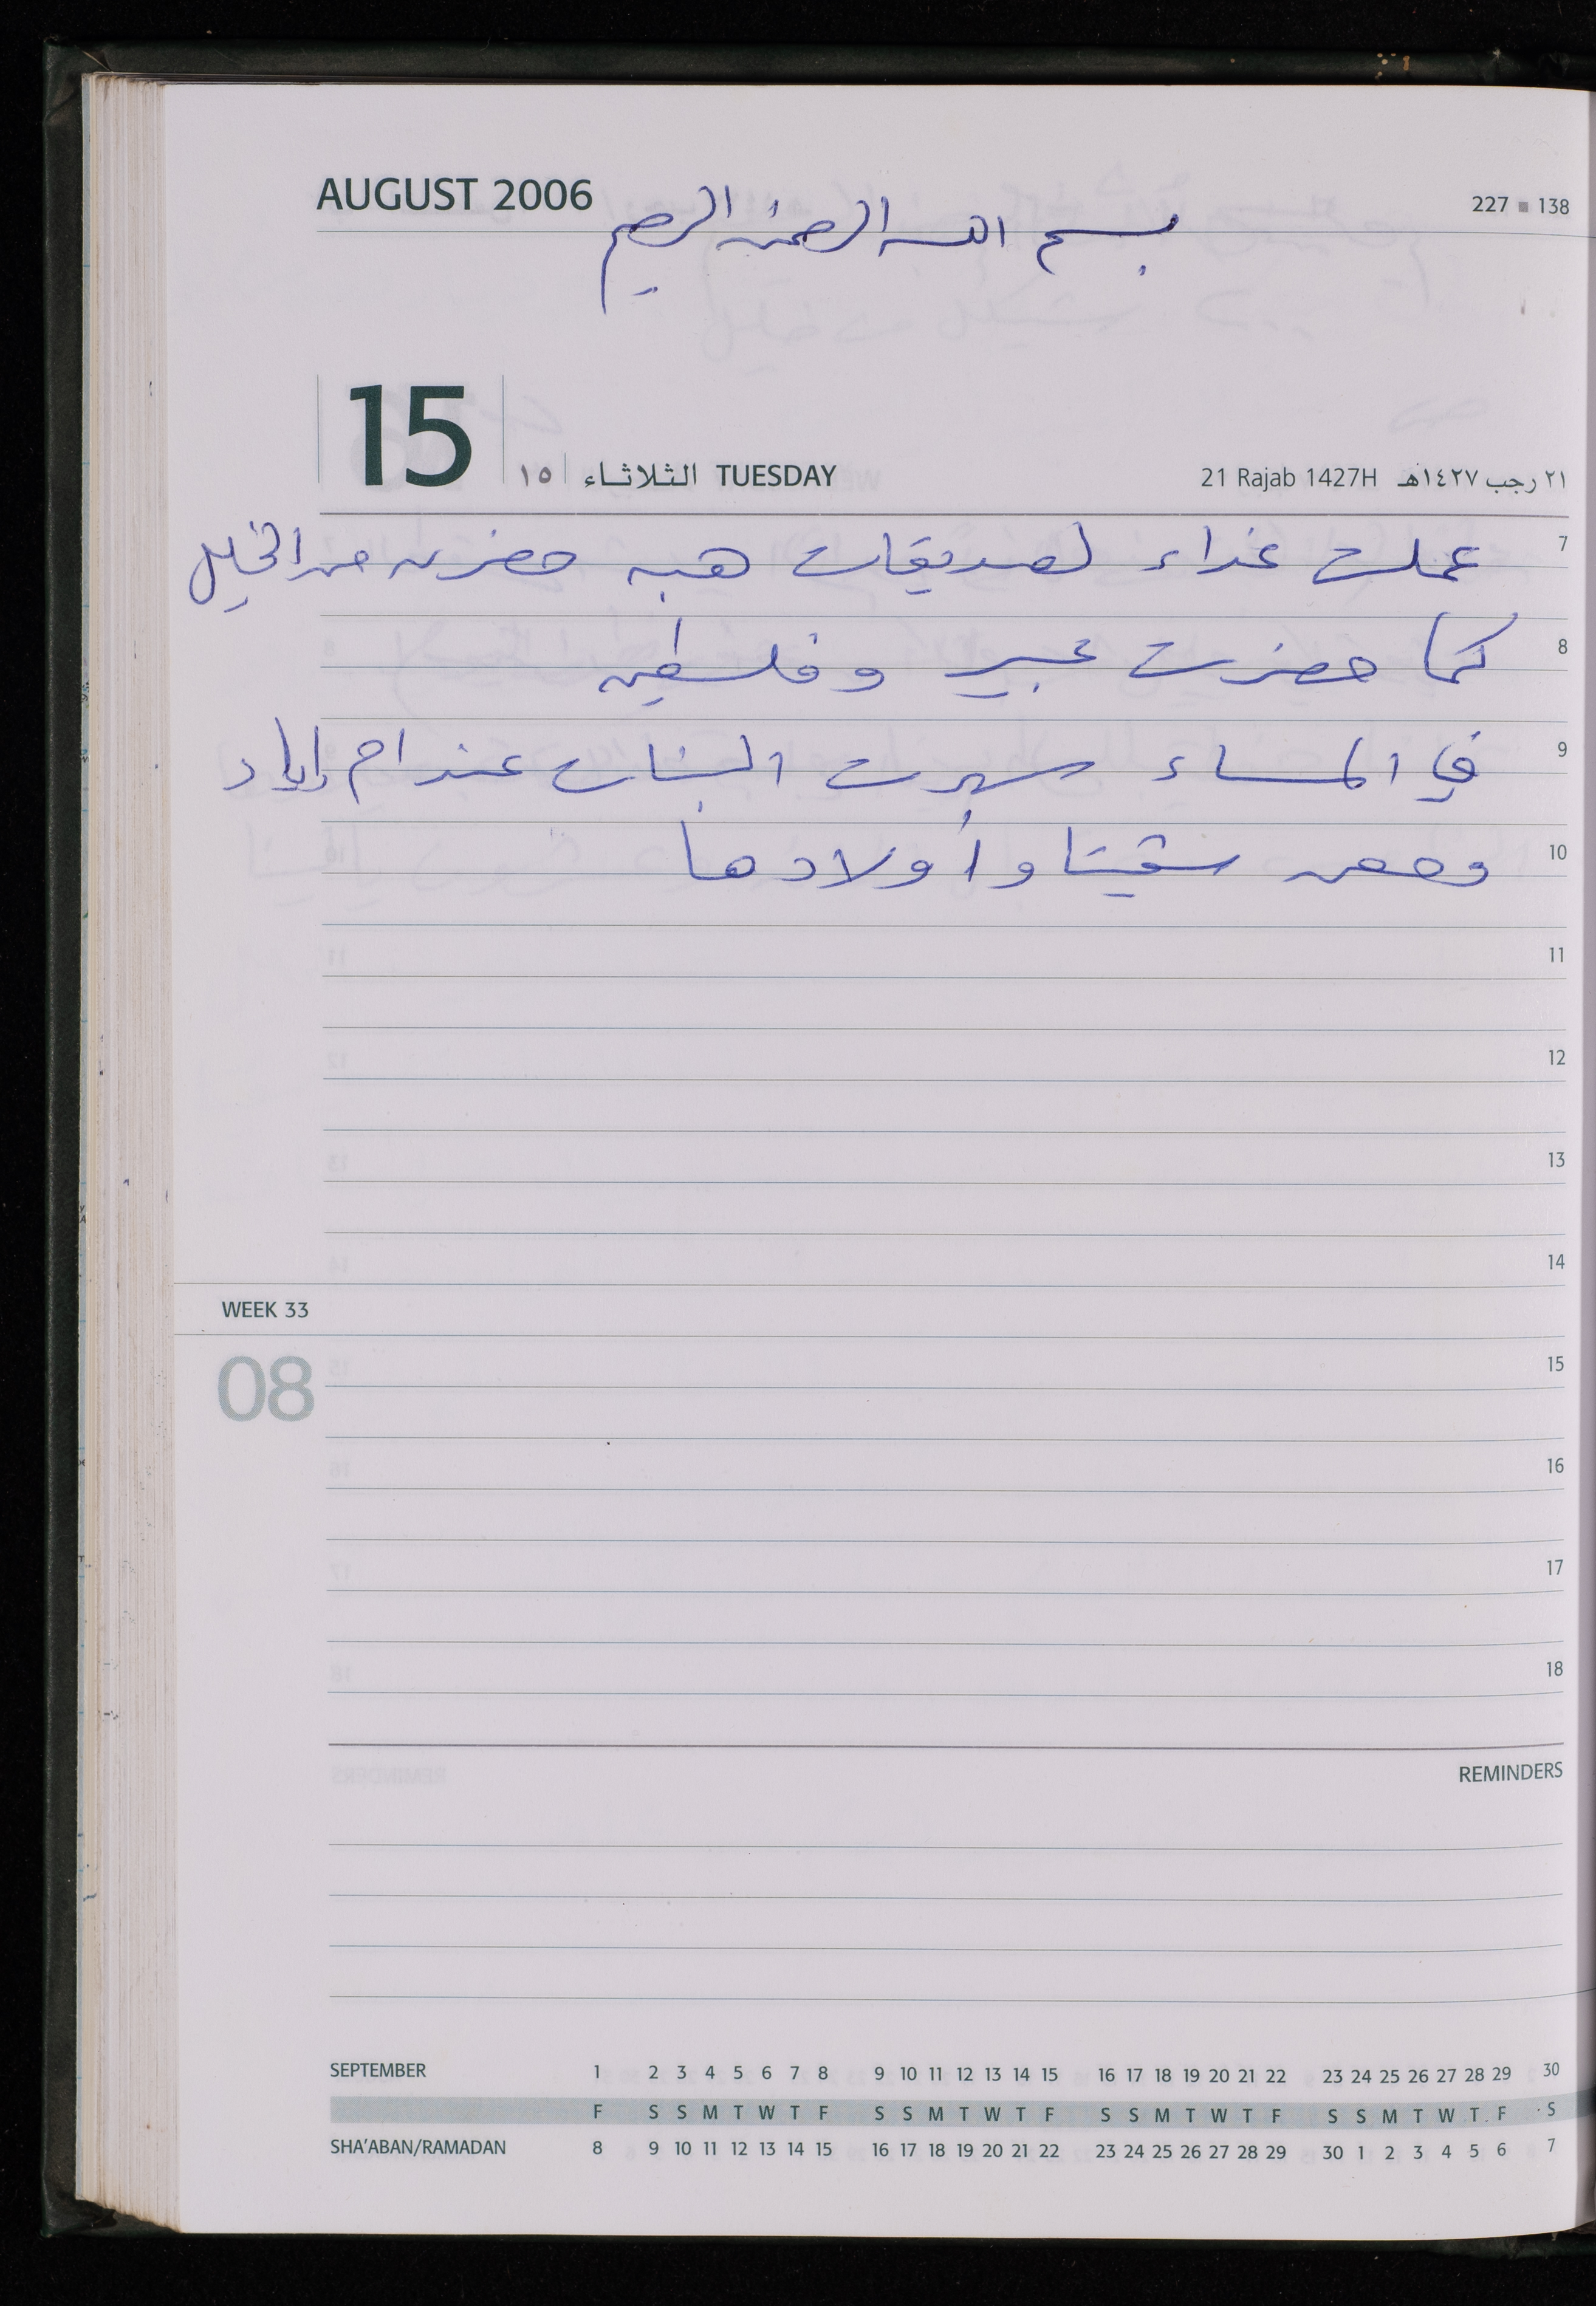 AUGUST 2006
227 ■ 138
بسم الله الرحمن الرحيم
15
١٥ الثلاثاء TUESDAY
21 Rajab 1427H ٢١ رجب ١٤٢٧هـ
7
عملت غداء لصديقات هبه حضرن من الخليل
8
كما حضرت عبير وفلسطين
9
في المساء سهرت البنات عند ام إياد
10
ومعهن شقيقتنا وأولادها
11
12
13
14
WEEK 33
08
15
16
17
18
REMINDERS
SEPTEMBER 1 2 3 4 5 6 7 8 9 10 11 12 13 14 15 16 17 18 19 20 21 22 23 24 25 26 27 28 29 30
F S S M T W T F S S M T W T F S S M T W T F S S M T W T F S
SHA'ABAN/RAMADAN 8 9 10 11 12 13 14 15 16 17 18 19 20 21 22 23 24 25 26 27 28 29 30 1 2 3 4 5 6 7